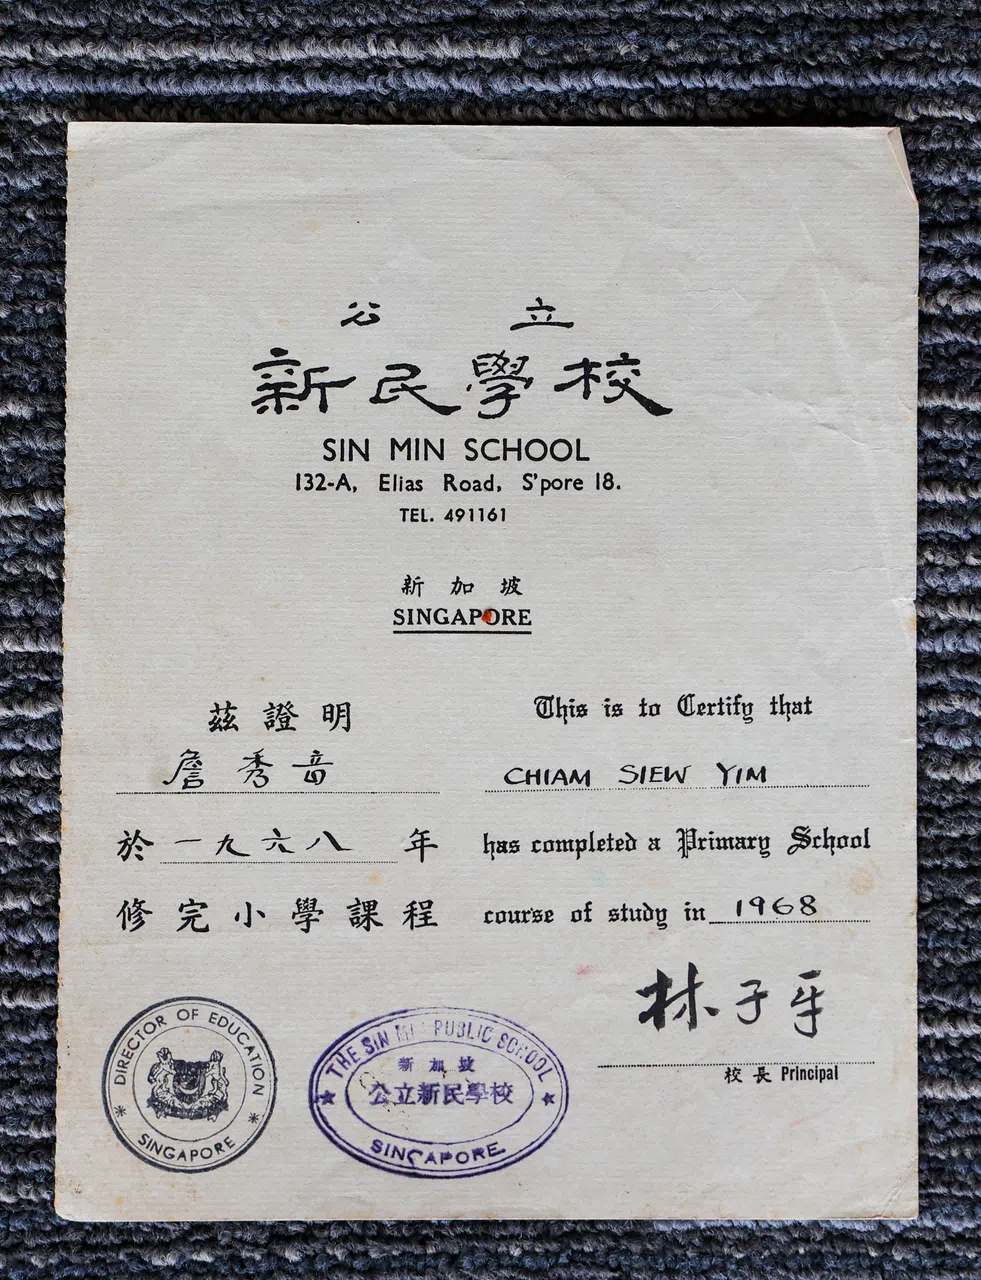 公立
新民學校
SIN MIN SCHOOL
132-A, Elias Road, S'pore 18.
TEL. 491161
新加坡
SINGAPORE
茲證明
詹秀音
於一九六八年
修完小學課程
This is to Certify that
CHIAM SIEW YIM
has completed a Primary School
course of study in 1968
林子平
校長 Principal
DIRECTOR OF EDUCATION
SINGAPORE
THE SIN MIN PUBLIC SCHOOL
新加坡
公立新民學校
SINGAPORE